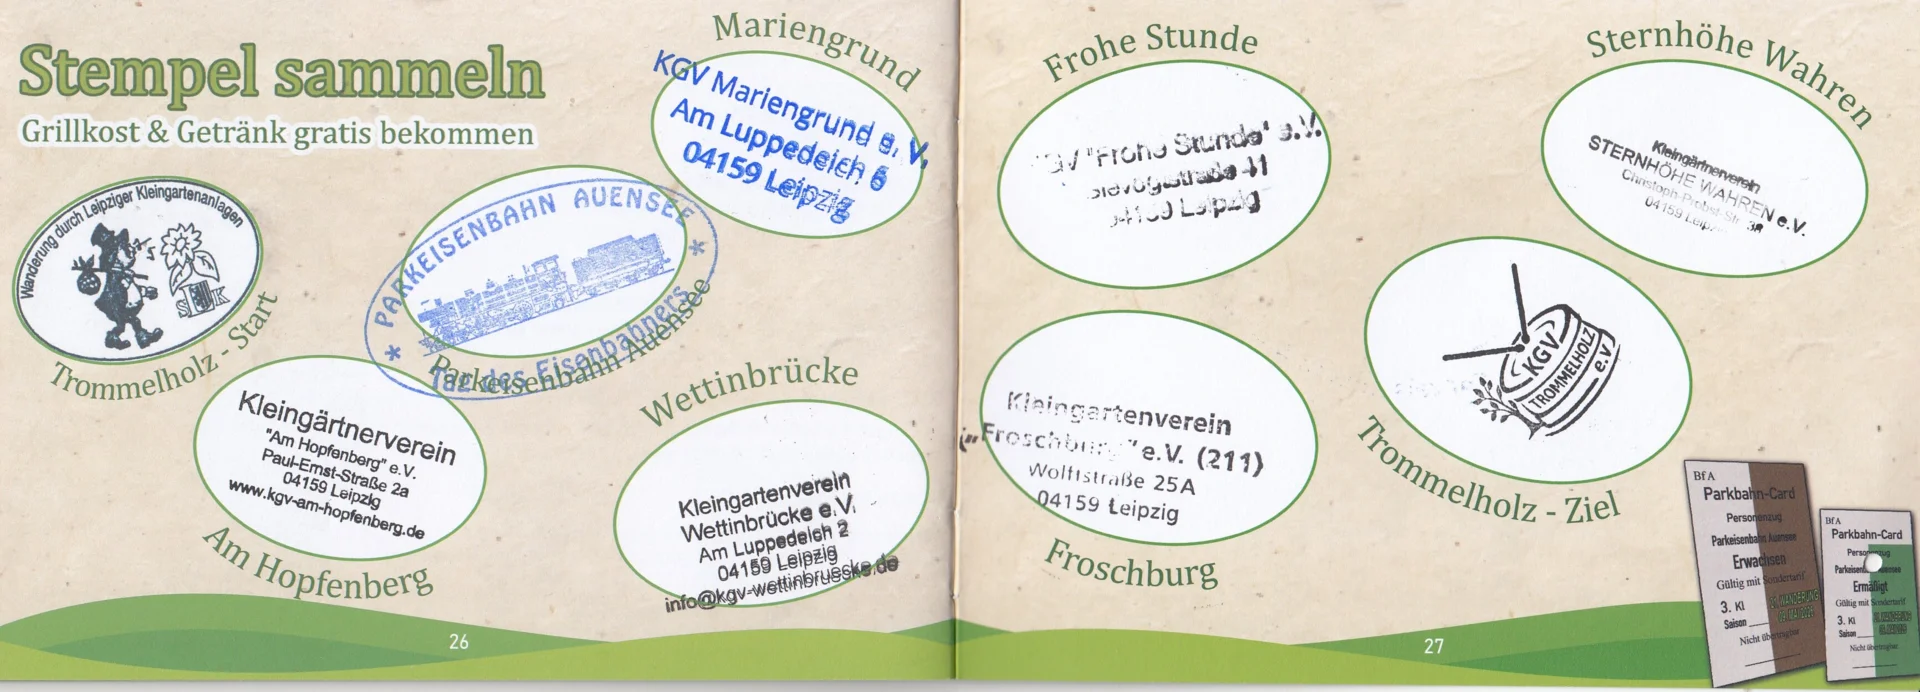 Stempel sammeln
Grillkost & Getränk gratis bekommen
Wanderung durch Leipziger Kleingartenanlagen
Trommelholz - Start
PARKEISENBAHN AUENSEE
Tag des Eisenbahners
Parkeisenbahn Auensee
Mariengrund
KGV Mariengrund e. V.
Am Luppedeich 6
04159 Leipzig
Kleingärtnerverein
"Am Hopfenberg" e.V.
Paul-Ernst-Straße 2a
04159 Leipzig
www.kgv-am-hopfenberg.de
Am Hopfenberg
Wettinbrücke
Kleingartenverein
Wettinbrücke e.V.
Am Luppedeich 2
04159 Leipzig
info@kgv-wettinbruecke.de
26
Frohe Stunde
"Frohe Stunde" e.V.
Leipzig
Kleingartenverein
("Froschburg" e.V. (211)
Wolffstraße 25A
04159 Leipzig
Froschburg
Sternhöhe Wahren
Kleingärtnerverein
STERNHÖHE WAHREN e.V.
Christoph-Probst-Str. 38
04159 Leipzig
KGV
TROMMELHOLZ
e.V.
Trommelholz - Ziel
27
BfA
Parkbahn-Card
Personenzug
Parkeisenbahn Auensee
Erwachsen
Gültig mit Sondertarif
3. Kl
Saison
Nicht übertragbar
BfA
Parkbahn-Card
Personenzug
Parkeisenbahn Auensee
Ermäßigt
Gültig mit Sondertarif
3. Kl
Saison
Nicht übertragbar